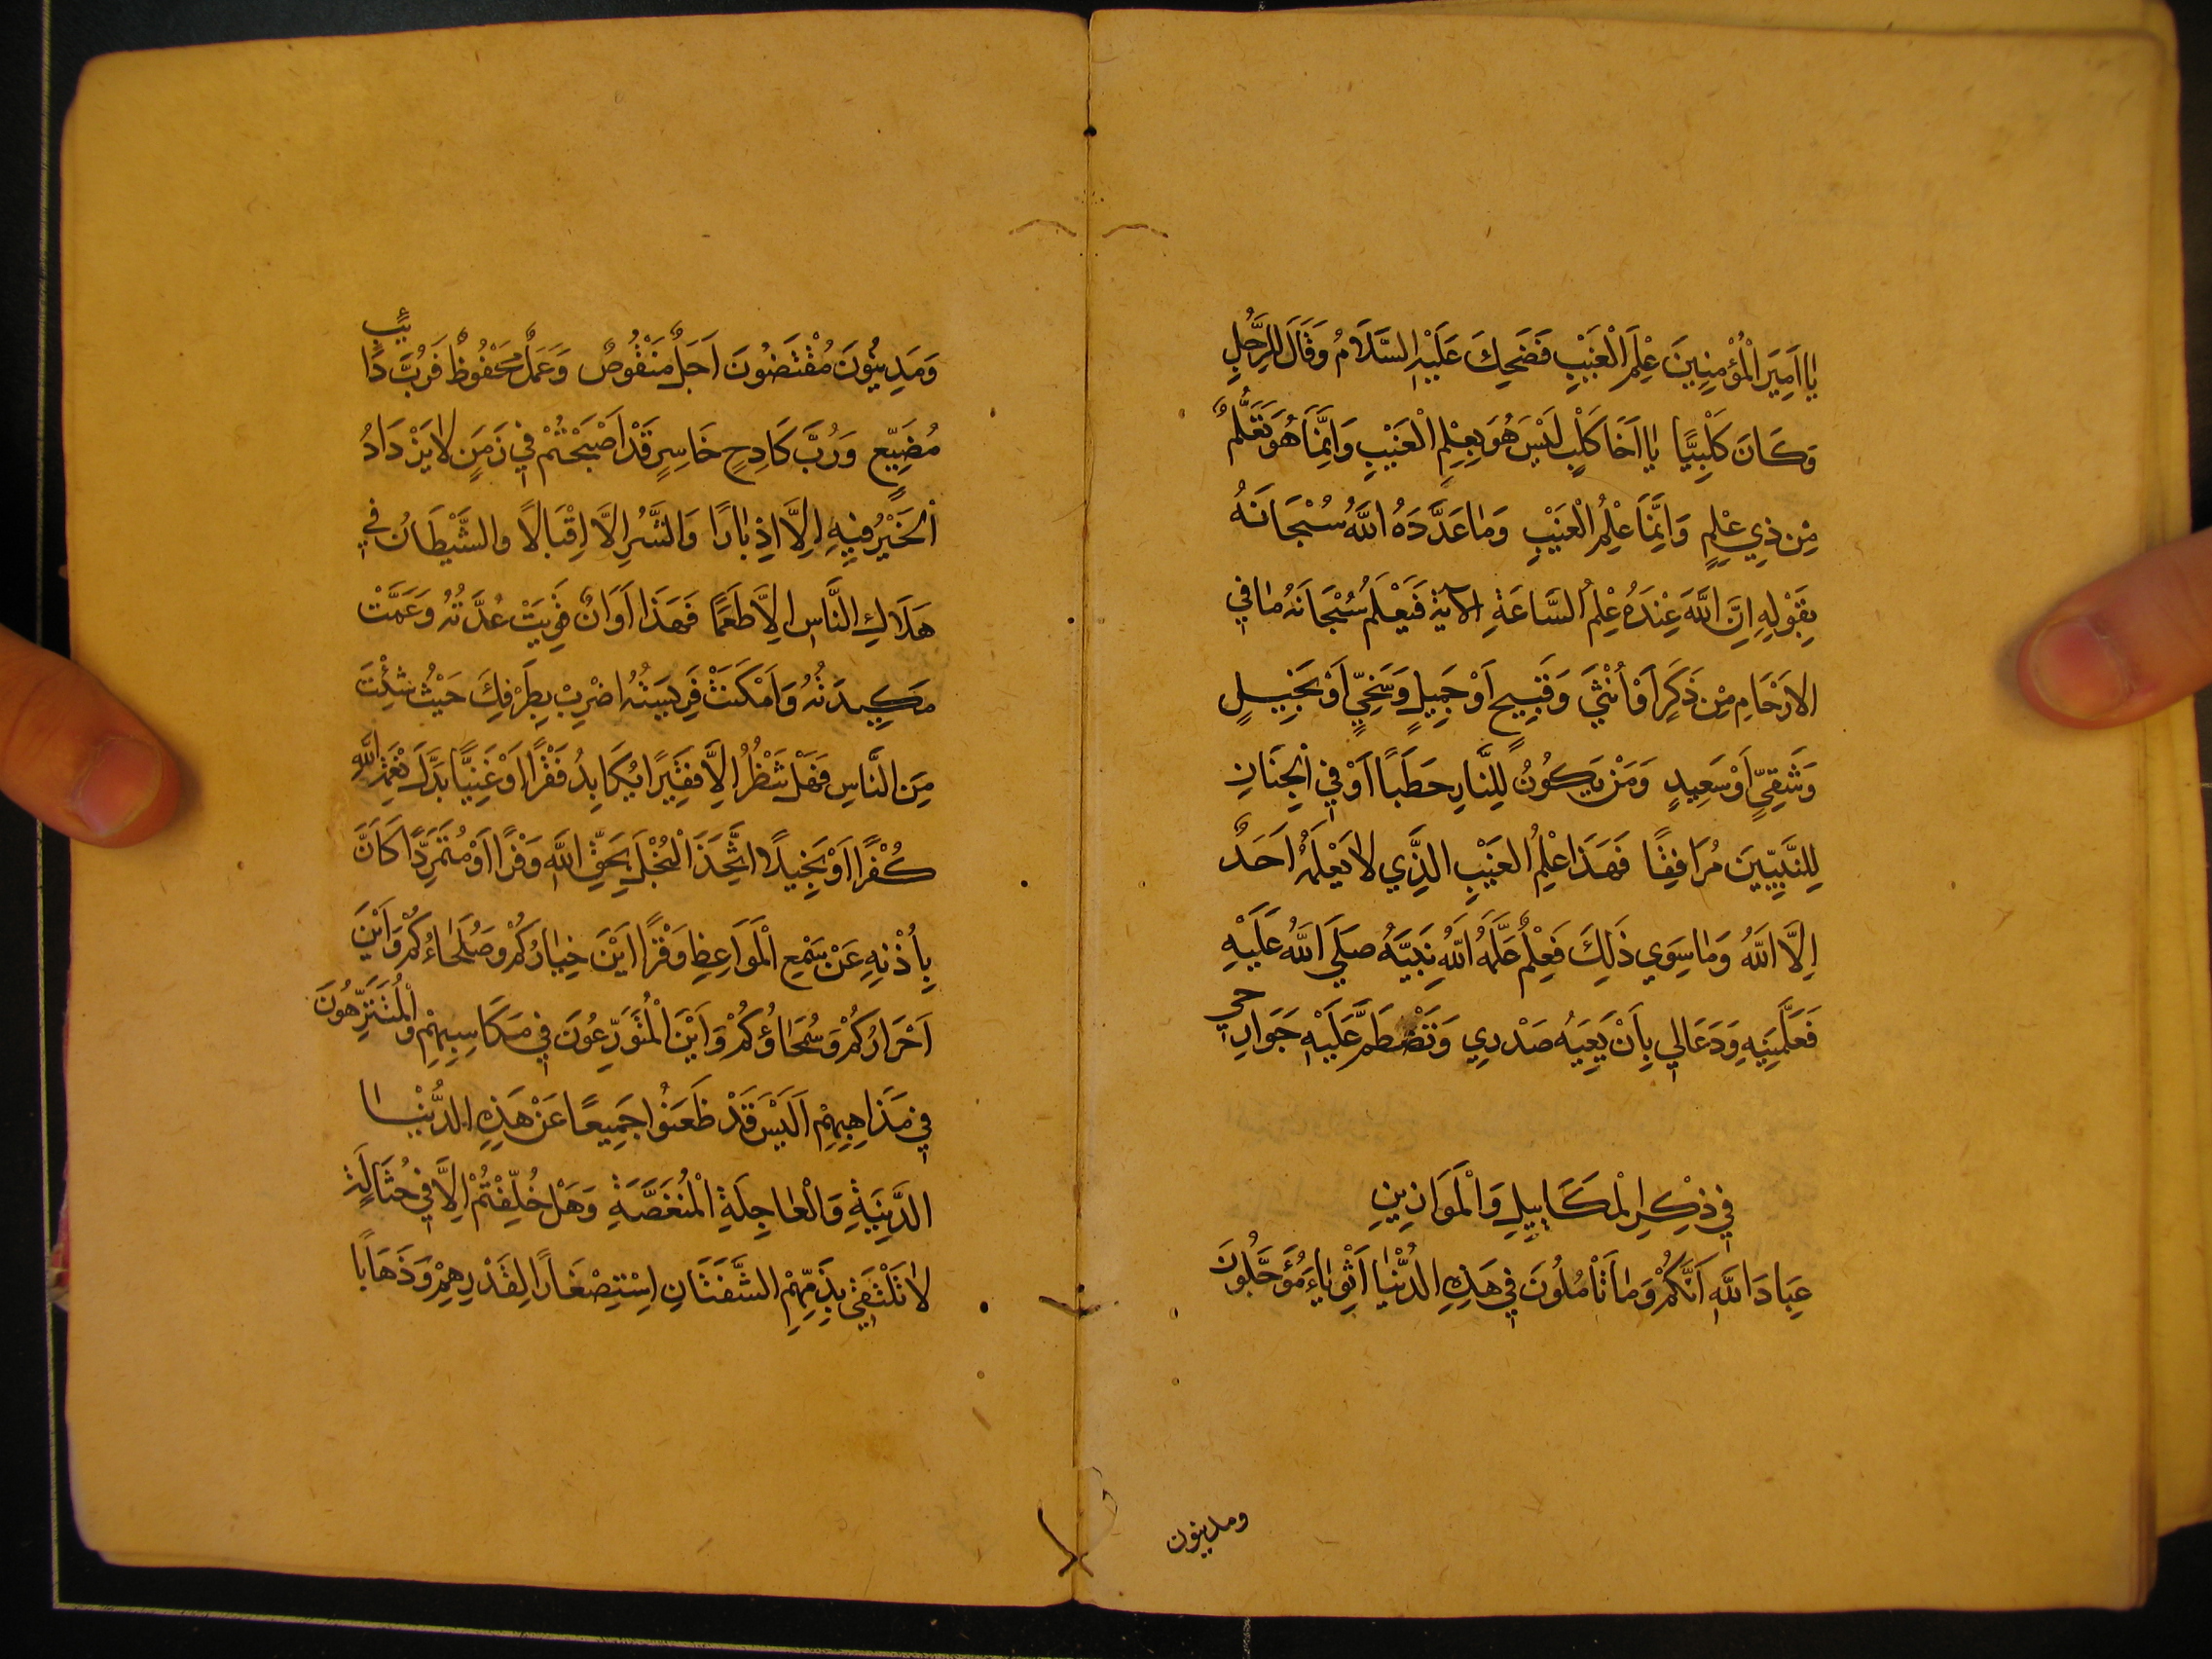 يٰا اَمِيرَ الْمُؤْمِنِينَ عِلْمَ الْغَيْبِ فَضَحِكَ عَلَيْهِ السَّلَامُ وَقَالَ لِلرَّجُلِ
وَكَانَ كَلْبِيًّا يٰا اَخَا كَلْبٍ لَيْسَ هُوَ بِعِلْمِ الْغَيْبِ وَاِنَّمَا هُوَ تَعَلُّمٌ
مِنْ ذِي عِلْمٍ وَاِنَّمَا عِلْمُ الْغَيْبِ وَمٰا عَدَّدَهُ اللّٰهُ سُبْحَانَهُ
بِقَوْلِهِ اِنَّ اللّٰهَ عِنْدَهُ عِلْمُ السَّاعَةِ الآيَة فَيَعْلَمُ سُبْحَانَهُ مٰا فِي
الاَرْحَامِ مِنْ ذَكَرٍ اَوْ اُنْثَي وَقَبِيحٍ اَوْ جَمِيلٍ وَسَخِيٍّ اَوْ بَخِيلٍ
وَشَقِيٍّ اَوْ سَعِيدٍ وَمَنْ يَكُونُ لِلنَّارِ حَطَبًا اَوْ فِي الْجِنَانِ
لِلنَّبِيِّينَ مُرَافِقًا فَهَذَا عِلْمُ الْغَيْبِ الَّذِي لاٰ يَعْلَمُهُ اَحَدٌ
اِلَّا اللّٰهُ وَمٰا سِوَي ذَلِكَ فَعِلْمٌ عَلَّمَهُ اللّٰهُ نَبِيَّهُ صَلَي اللّٰهُ عَلَيْهِ
فَعَلَّمَنِيهِ وَدَعَا لِي بِاَنْ يَعِيَهُ صَدْرِي وَتَضْطَمَّ عَلَيْهِ جَوَارِحِي
فِي ذِكْرِ الْمَكَايِيلِ وَالْمَوَازِينِ
عِبَادَ اللّٰهِ اَنَّكُمْ وَمٰا تَأْمُلُونَ فِي هَذِهِ الدُّنْيٰا اَثْوِيٰاءُ مُؤَجَّلُونَ
ومدينون
وَمَدِينُونَ مُقْتَضَوْنَ اَجَلٌ مَنْقُوصٌ وَعَمَلٌ مَحْفُوظٌ فَرُبَّ دَائِبٍ
مُضَيِّعٍ وَرُبَّ كَادِحٍ خَاسِرٍ قَدْ اَصْبَحْتُمْ فِي زَمَنٍ لاٰ يَزْدَادُ
الْخَيْرُ فِيهِ اِلَّا اِدْبٰارًا وَالشَّرُ اِلَّا اِقْبَالاً وَالشَّيْطَانُ فِي
هَلَاكِ النَّاسِ اِلاَّ طَعَمًا فَهَذَا اَوَانٌ قَوِيَتْ عُدَّتُهُ وَعَمَّتْ
مَكِيدَتُهُ وَاَمْكَنَتْ فَرِيسَتُهُ اضْرِبْ بِطَرْفِكَ حَيْثُ شِئْتَ
مِنَ النَّاسِ فَهَلْ تَنْظُرُ اِلاَّ فَقِيرًا يُكَابِدُ فَقْرًا اَوْ غَنِيًّا بَدَّلَ نِعْمَةَ اللّٰهِ
كُفْرًا اَوْ بَخِيلاً اتَّخَذَ الْبُخْلَ بِحَقِّ اللّٰهِ وَفْرًا اَوْ مُتَمَرِّدًا كَاَنَّ
بِاُذْنِهِ عَنْ سَمْعِ الْمَوَاعِظِ وَقْرًا اَيْنَ خِيٰارُكُمْ وَصُلَحٰاءُكُمْ وَاَيْنَ
اَحْرَارُكُمْ وَسُمَحٰاؤُكُمْ وَاَيْنَ الْمُتَوَرِّعُونَ فِي مَكَاسِبِهِمْ وَالْمُتَنَزِّهُونَ
فِي مَذَاهِبِهِمْ اَلَيْسَ قَدْ ظَعَنُوا جَمِيعًا عَنْ هَذِهِ الدُّنْيٰا
الدَّنِيَّةِ وَالْعٰاجِلَةِ الْمُنَغَّصَةِ وَهَلْ خُلِّفْتُمْ اِلاَّ فِي حُثَالَةٍ
لاٰ تَلْتَقِي بِذَمِّهِمْ الشَّفَتَانِ اِسْتِصْغَارًا لِقَدْرِهِمْ وَذَهَابًا